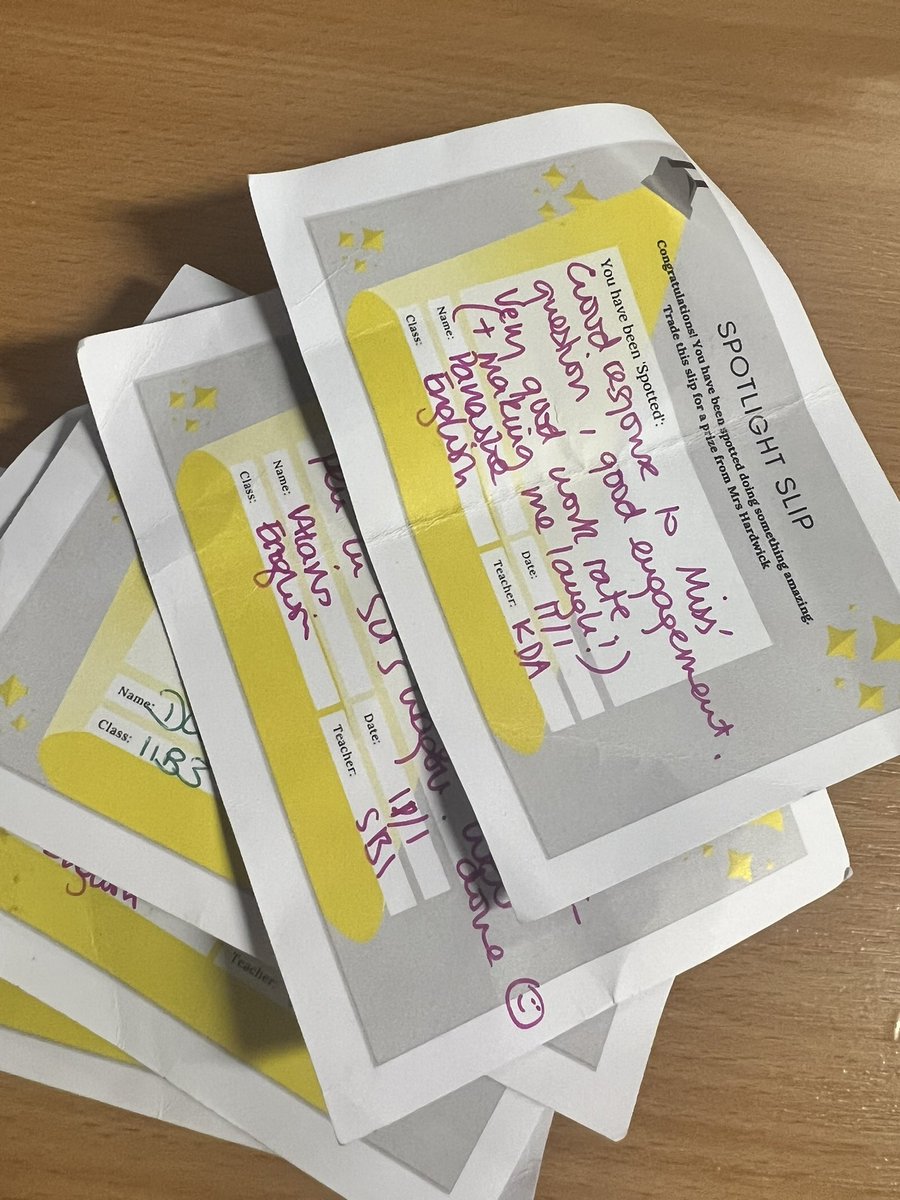 SPOTLIGHT SLIP
Congratulations! You have been spotted doing something amazing.
Trade this slip for a prize from Mrs Hardwick
You have been 'Spotted':
Good response to Miss'
question, good engagement.
Very good work rate!
(+ making me laugh!)
Name:
Date: 17/1
Class: English
Teacher: KDA
well done
Name:
Date: 18/1
Class: English
Teacher: SB1
Name:
Class: 11B3
English
Teacher: